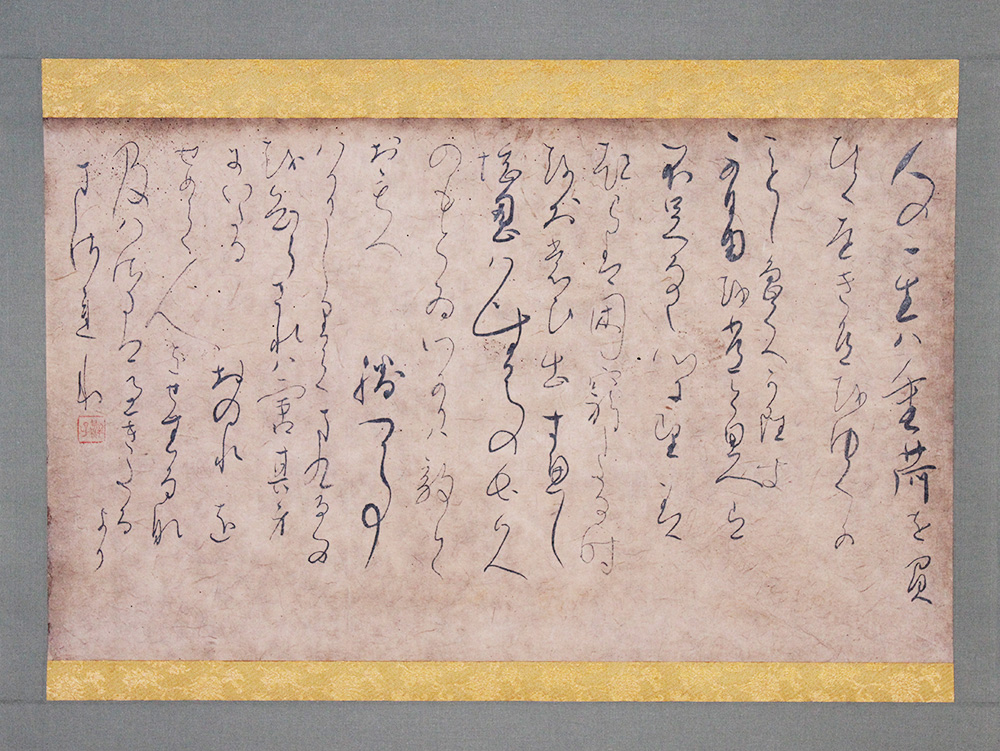 人の一生ハ重荷を負
て遠き道をゆくか
ことし急くへからす
不自由を常と思へは
不足なし心に望
起らは困窮したる時
を思ひ出すへし
堪忍ハ無事長久
のもとゐいかりハ敵と
おもへ 勝つ事
ハかりしりてまくる事
を知らされハ害其身
にいたる おのれを
せめて人をせむるな
及ハさるは過きたるより
まされり